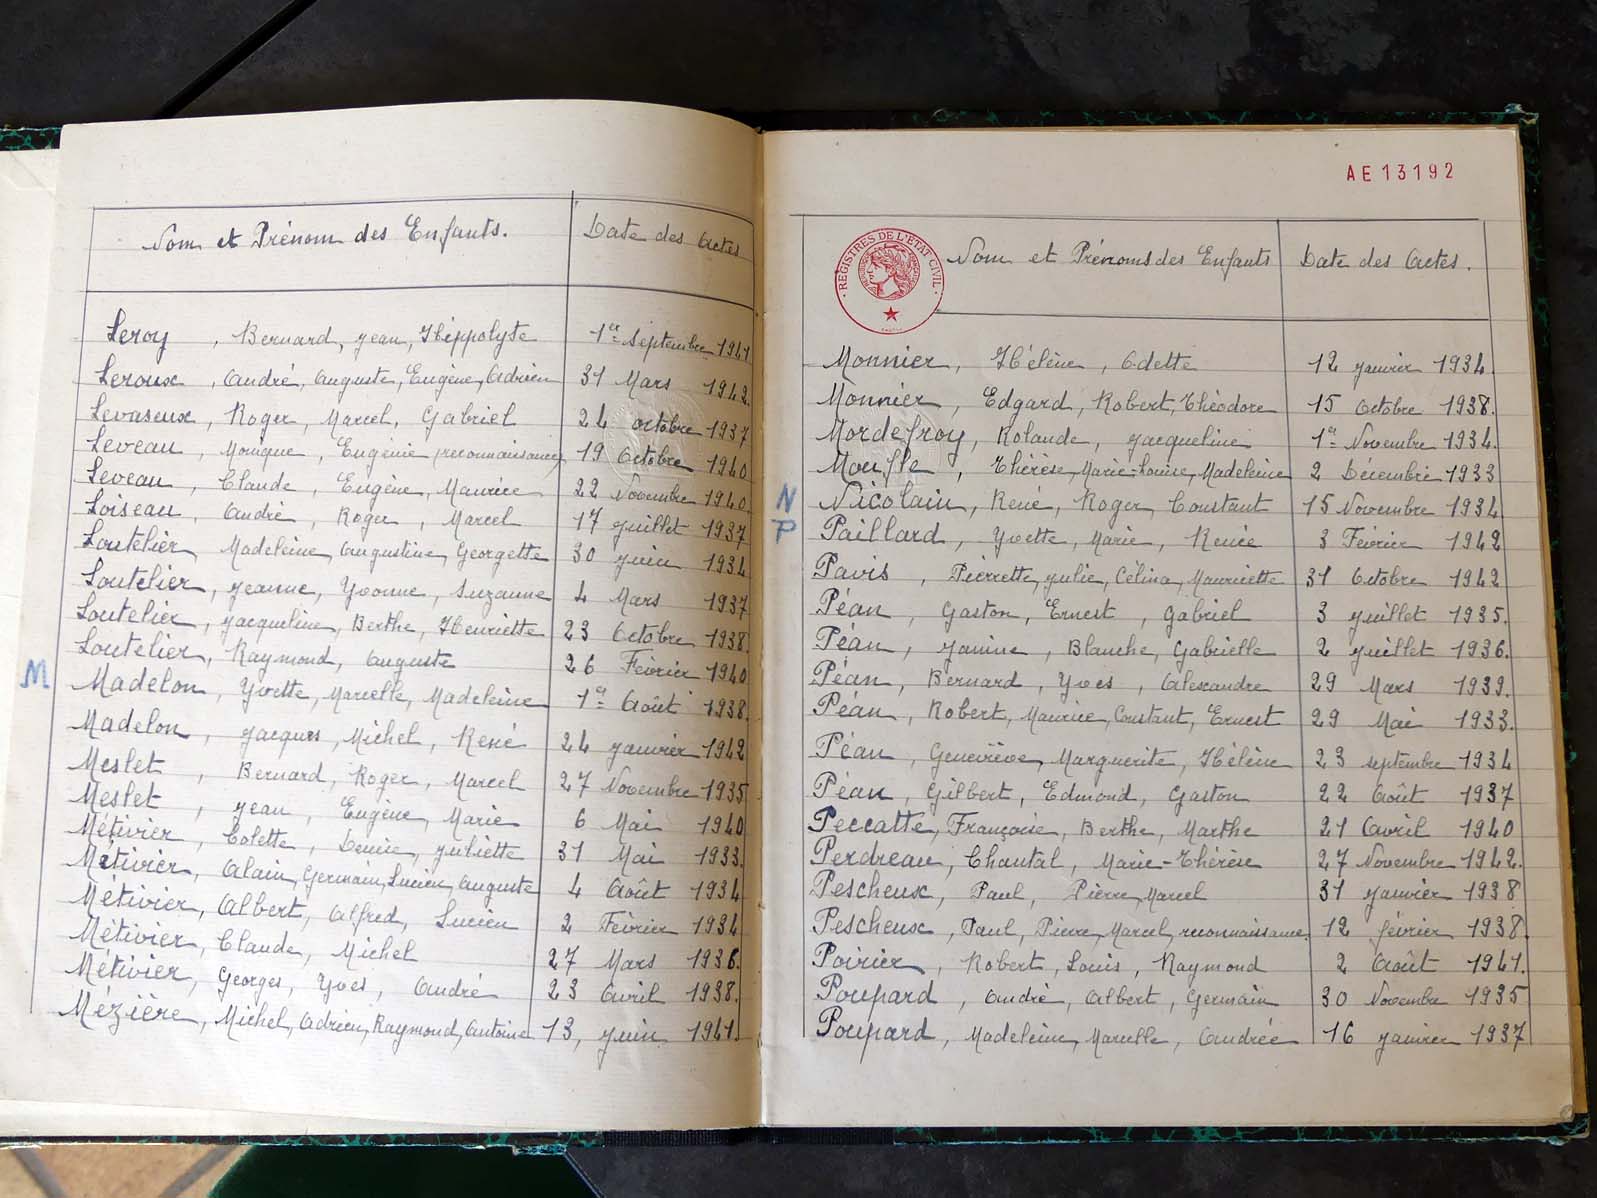 Nom et Prénom des Enfants. Date des Actes
Leroy, Bernard, Jean, Hippolyte 1er Septembre 1941
Leroux, André, Auguste, Eugène, Adrien 31 Mars 1942.
Levaseux, Roger, Marcel, Gabriel 24 octobre 1937
Leveau, Monique, Eugénie (reconnaissance) 19 Octobre 1940
Leveau, Claude, Eugène, Maurice 22 Novembre 1940
Loiseau, André, Roger, Marcel 17 Juillet 1937
Loutelier, Madeleine, Augustine, Georgette 30 Juin 1934
Loutelier, Jeanne, Yvonne, Suzanne 4 Mars 1937
Loutelier, Jacqueline, Berthe, Henriette 23 Octobre 1938.
Loutelier, Raymond, Auguste 26 Février 1940
M
Madelon, Yvette, Marcelle, Madeleine 1er Août 1938.
Madelon, Jacques, Michel, René 24 Janvier 1942
Meslet, Bernard, Roger, Marcel 27 Novembre 1935
Meslet, Jean, Eugène, Marie 6 Mai 1940
Métivier, Colette, Denise, Juliette 31 Mai 1933.
Métivier, Alain, Germain, Lucien, Auguste 4 Août 1934
Métivier, Albert, Alfred, Lucien 2 Février 1934
Métivier, Claude, Michel 27 Mars 1936.
Métivier, Georges, Yves, André 23 Avril 1938.
Mézière, Michel, Adrien, Raymond, Antoine 13, Juin 1941.
AE13192
REGISTRES DE L'ETAT CIVIL
Nom et Prénoms des Enfants Date des Actes.
Monnier, Hélène, Odette 12 Janvier 1934.
Monnier, Edgard, Robert, Théodore 15 Octobre 1938.
Mordefroy, Rolande, Jacqueline 1er Novembre 1934.
Moufle, Thérèse, Marie-Louise, Madeleine 2 Décembre 1933
N
Nicolain, René, Roger, Constant 15 Novembre 1934
P
Paillard, Yvette, Marie, Renée 3 Février 1942
Pavis, Pierrette, Julie, Célina, Mauricette 31 Octobre 1942
Péan, Gaston, Ernest, Gabriel 3 Juillet 1935.
Péan, Janine, Blanche, Gabrielle 2 Juillet 1936.
Péan, Bernard, Yves, Alexandre 29 Mars 1939.
Péan, Robert, Maurice, Constant, Ernest 29 Mai 1933.
Péan, Geneviève, Marguerite, Hélène 23 septembre 1934
Péan, Gilbert, Edmond, Gaston 22 Août 1937
Peccatte, Françoise, Berthe, Marthe 21 Avril 1940
Perdreau, Chantal, Marie-Thérèse 27 Novembre 1942.
Pescheux, Paul, Pierre, Marcel 31 Janvier 1938
Pescheux, Paul, Pierre, Marcel, reconnaissance 12 février 1938.
Poirier, Robert, Louis, Raymond 2 Août 1941.
Poupard, André, Albert, Germain 30 Novembre 1935
Poupard, Madeleine, Marcelle, Andrée 16 Janvier 1937